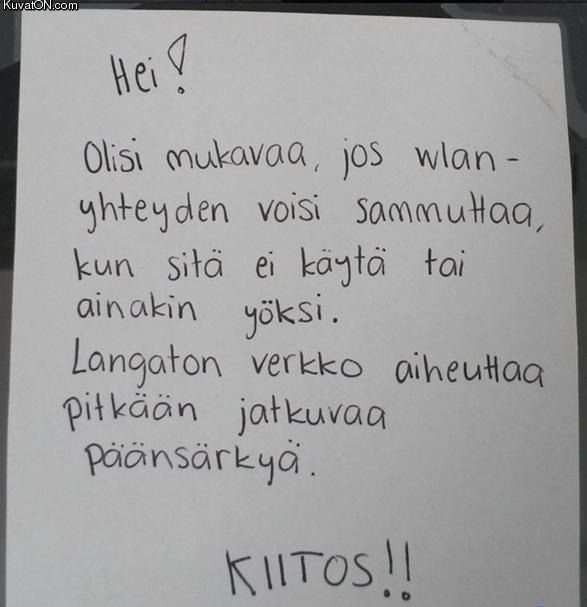 KuvatON.com
Hei!
Olisi mukavaa, jos wlan-
yhteyden voisi sammuttaa,
kun sitä ei käytä tai
ainakin yöksi.
Langaton verkko aiheuttaa
pitkään jatkuvaa
päänsärkyä.
KIITOS!!